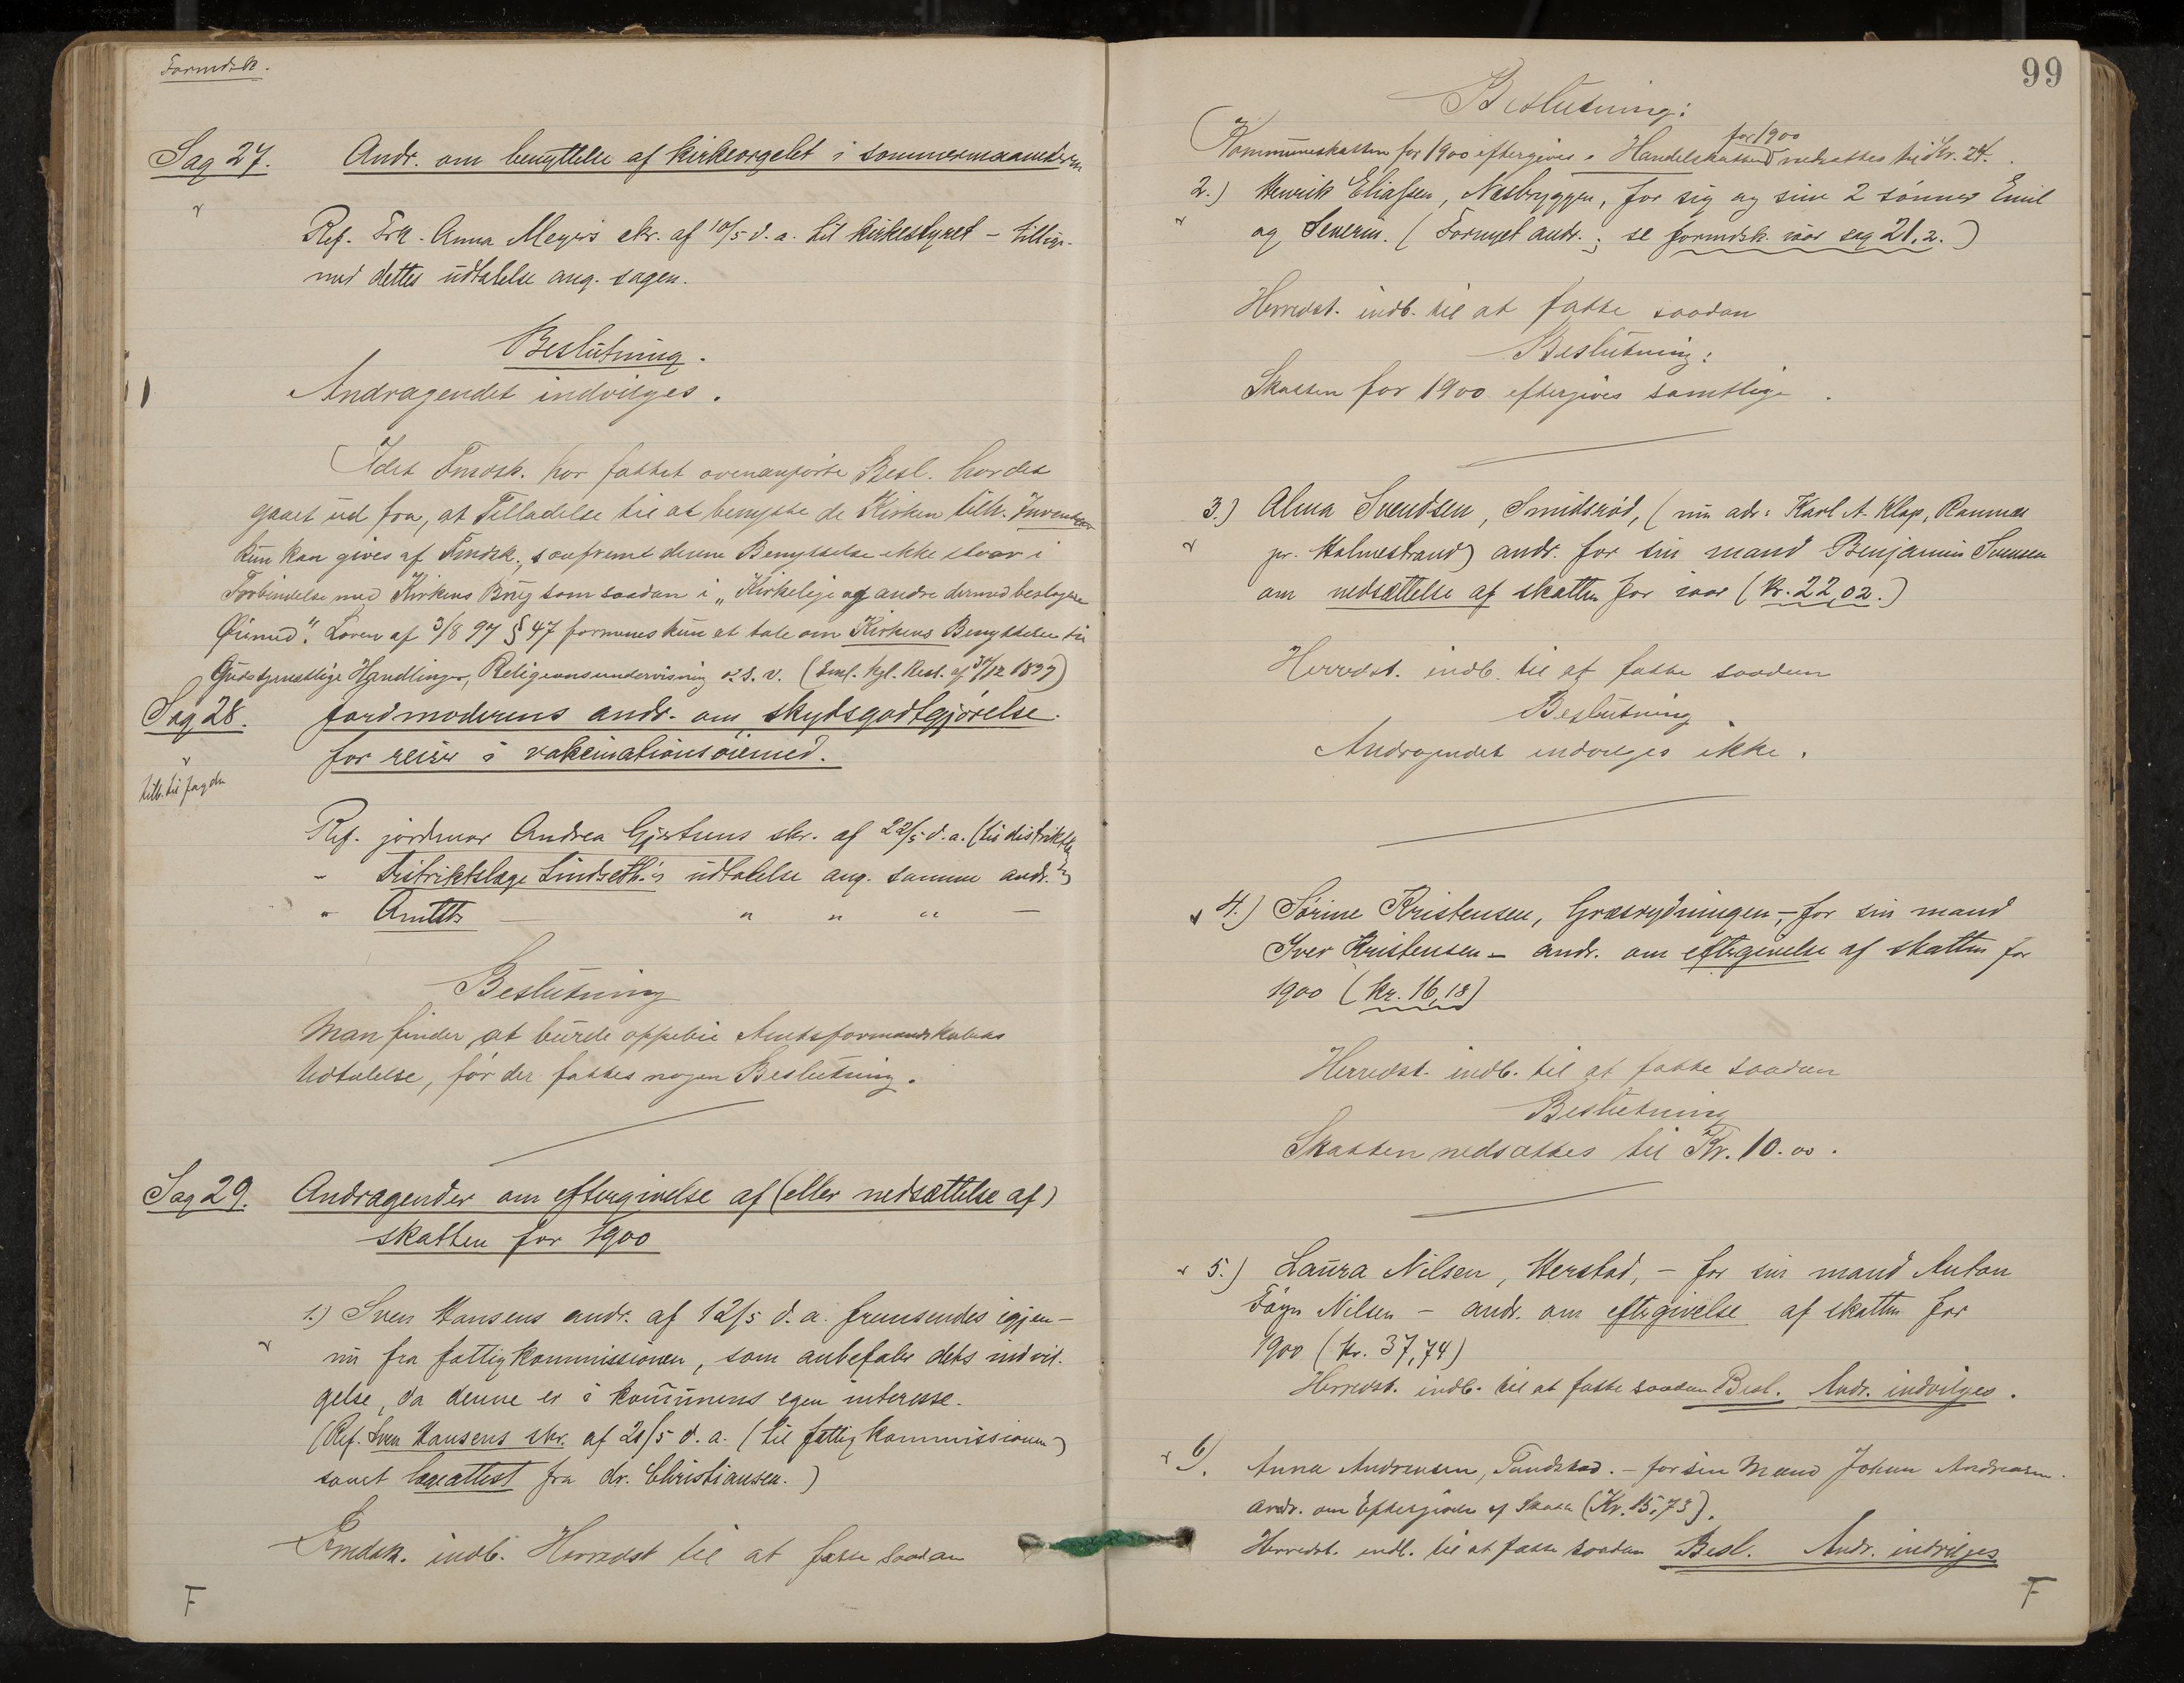 Formdsk.
Sag 27. Andr. om benyttelse af kirkeorgelet i sommermaanederne
Ref. Frk. Anna Meyers skr. af 10/5 d. a. til kirkestyret – tillige-
med dettes udtalelse ang. sagen.
Beslutning.
Andragendet indvilges.
Idet Fmdsk. har fattet ovenanførte Besl. har det
gaaet ud fra, at Tilladelse til at benytte de Kirken tilh. Inventar
kun kan gives af Fmdsk., saafremt denne Benyttelse ikke staar i
Forbindelse med Kirkens Brug som saadan i „Kirkelige og andre dermed beslægtede
Øiemed". Loven af 3/8 97 § 47 formenes kun at tale om Kirkens Benyttelse til
Gudstjenestlige Handlinger, Religionsundervisning o. s. v. (Sml. Kgl. Res. af 31/12 1877)
Sag 28. Jordmoderens andr. om skydsgodtgjørelse
for reiser i vakcinationsøiemed.
tilb. til fogden
Ref. jordmor Andrea Gjertsens skr. af 22/5 d. a. (til distriktslg.)
„ Distriktslæge Lindseth's udtalelse ang. samme andr.
„ Amtets — „ „ „ —
Beslutning
Man finder at burde oppebie Amtsformandskabets
Udtalelse, før der fattes nogen Beslutning.
Sag 29. Andragender om eftergivelse af (eller nedsættelse af)
skatten for 1900
1.) Sven Hansens andr. af 12/5 d. a. fremsendes igjen-
nem fra fattigkommissionen, som anbefaler dets indvil-
gelse, da denne er i kommunens egen interesse.
(Ref. Sven Hansens skr. af 21/5 d. a. (til fattigkommissionen)
samt lægeattest fra dr. Christiansen.)
Fmdsk. indb. Herredst til at fatte saadan
F
99
Beslutning:
for 1900
Kommuneskatten for 1900 eftergives. Handelsskatten nedsættes til Kr. 24.
2.) Henrik Eliassen, Næsbryggen, for sig og sine 2 sønner Emil
og Severin. (Fornyet andr.; se formdsk. iaar sag 21.2.)
Herredst. indb. til at fatte saadan
Beslutning:
Skatten for 1900 eftergives samtlige.
3.) Alma Svendsen, Smidsrød, (nu adr: Karl A. Klop, Ramnæs
pr. Holmestrand) andr. for sin mand Benjamin Svensen
om nedsættelse af skatten for iaar (kr. 22,02.)
Herredst. indb. til at fatte saadan
Beslutning.
Andragendet indvilges ikke.
4.) Sørine Kristensen, Græsrydningen, – for sin mand
Iver Kristensen – andr. om eftergivelse af skatten for
1900 (kr. 16,18)
Herredst. indb. til at fatte saadan
Beslutning
Skatten nedsættes til Kr. 10.00.
5.) Laura Nilsen, Herstad, – for sin mand Anton
Føyn Nilsen – andr. om eftergivelse af skatten for
1900 (kr. 37,74)
Herredst. indb. til at fatte saadan Besl. Andr. indvilges.
6). Anna Andreasen, Tandstad. – for sin Mand Johan Andreasen.
andr. om Eftergivelse af Skatten (Kr. 15,73).
Herredst. indb. til at fatte saadan Besl. Andr. indvilges
F